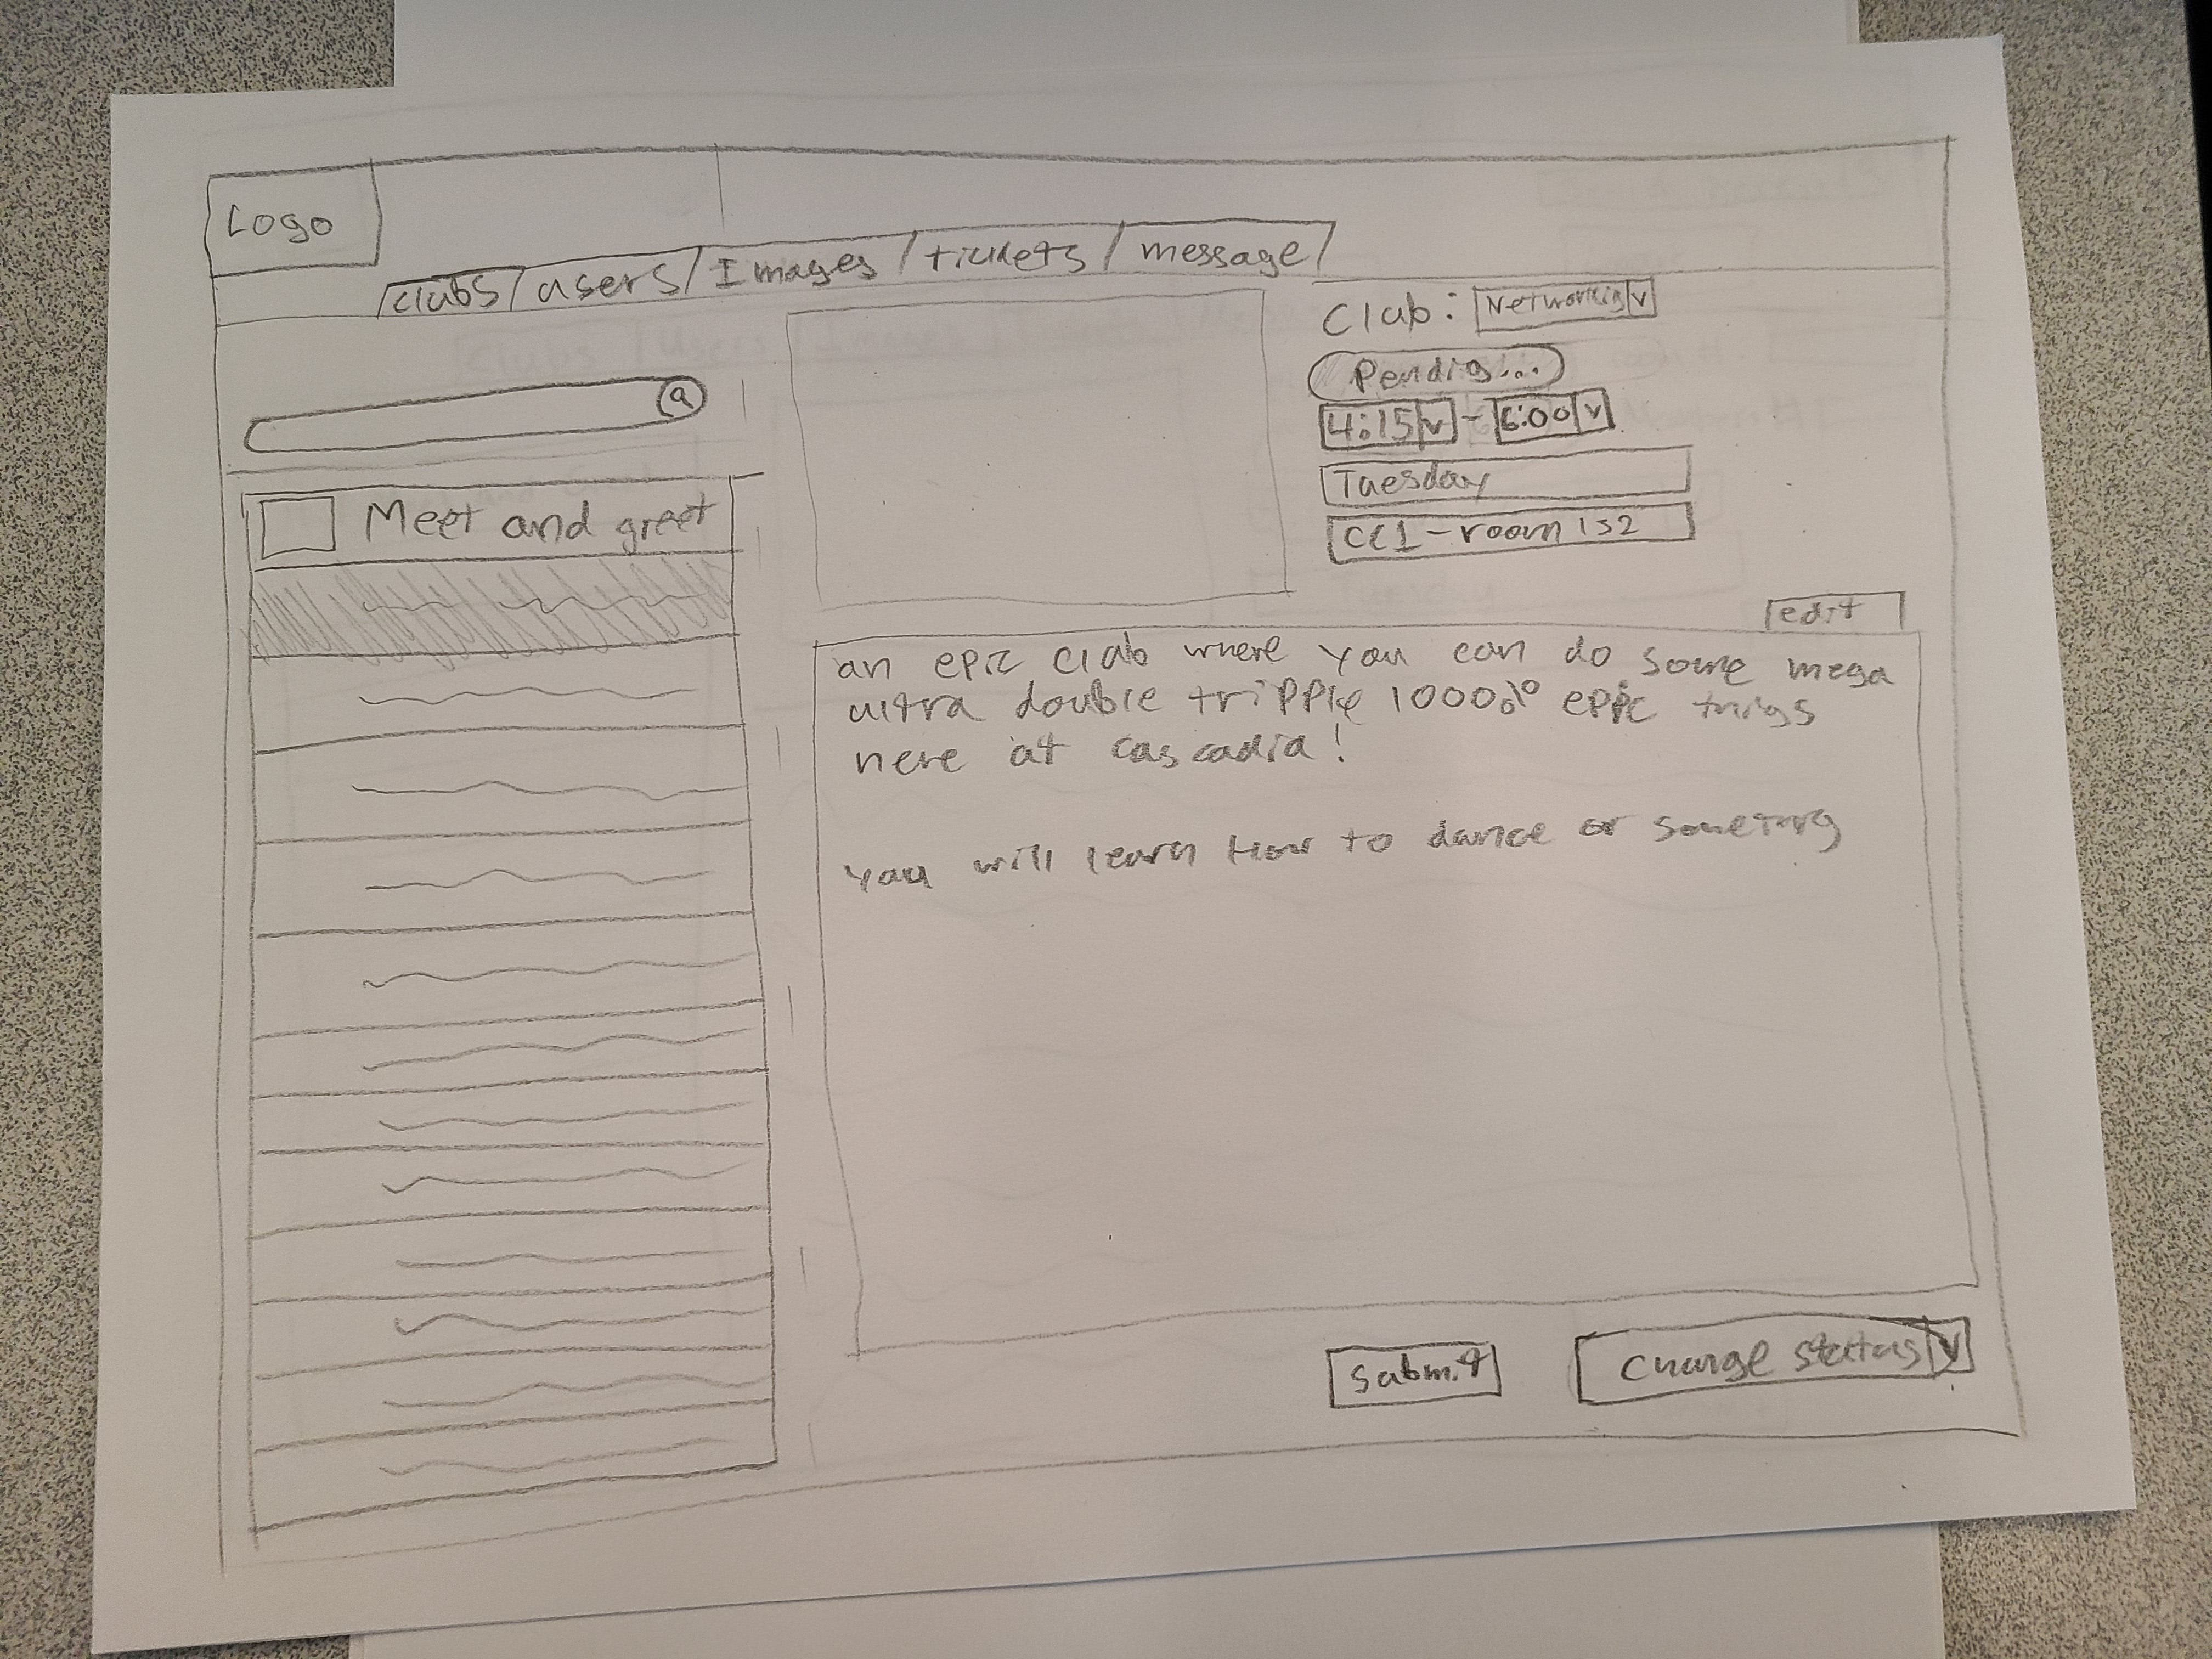 Logo
clubs / users / Images / tickets / message
Q
Meet and greet
Club: Networking v
Pending...
4:15 v - 6:00 v
Tuesday
CC1 - room 152
edit
an epic club where you can do some mega
ultra double tripple 1000% epic things
here at cascadia!
you will learn how to dance or something
Submit
Change status v